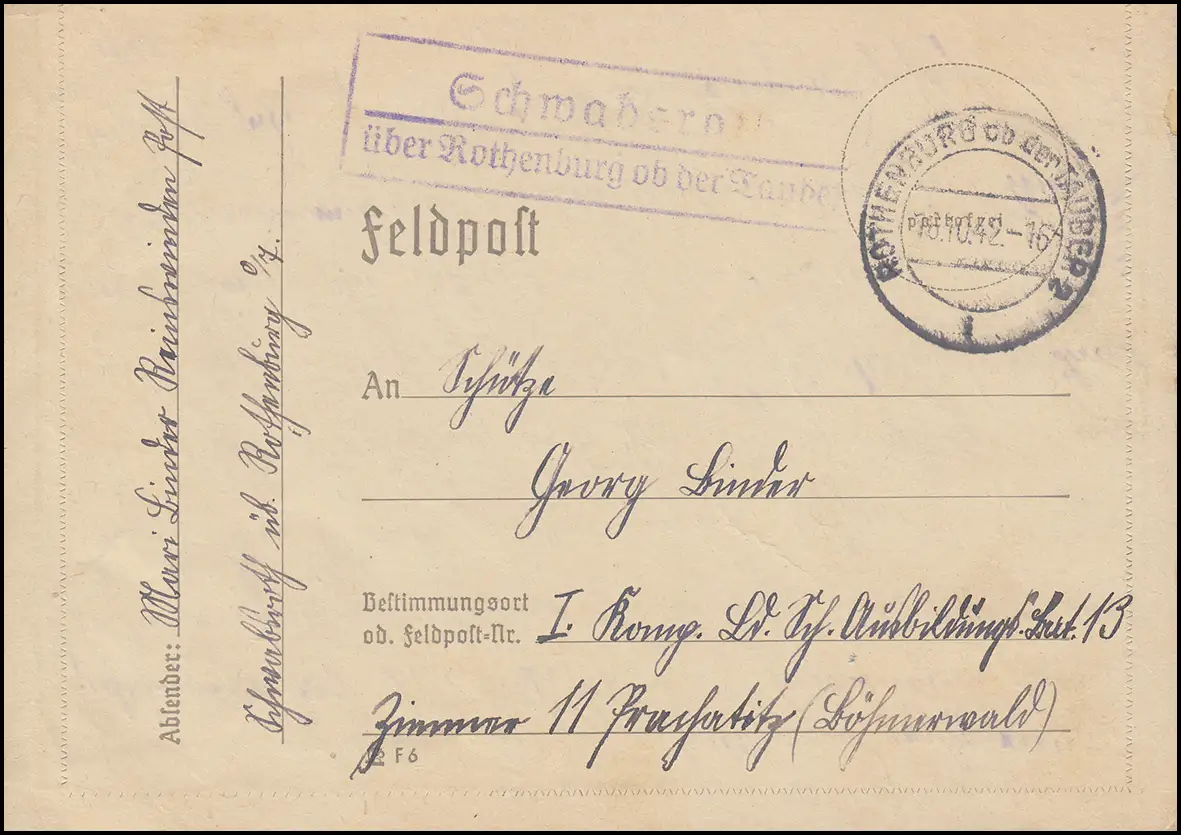 Schwabsro
über Rothenburg ob der Taube
Feldpost
ROTHENBURG ob der TAUBER 2
portofrei
16.10.42.-16
An Schütze
Georg Binder
Bestimmungsort
od. Feldpost-Nr. I. Komp. Ld. Sch. Ausbildungs. Bat. 13
Zimmer 11 Prachatitz (Böhmerwald)
F6
Absender: Mari Binder Post
Schwabsroth üb. Rothenburg o/T.